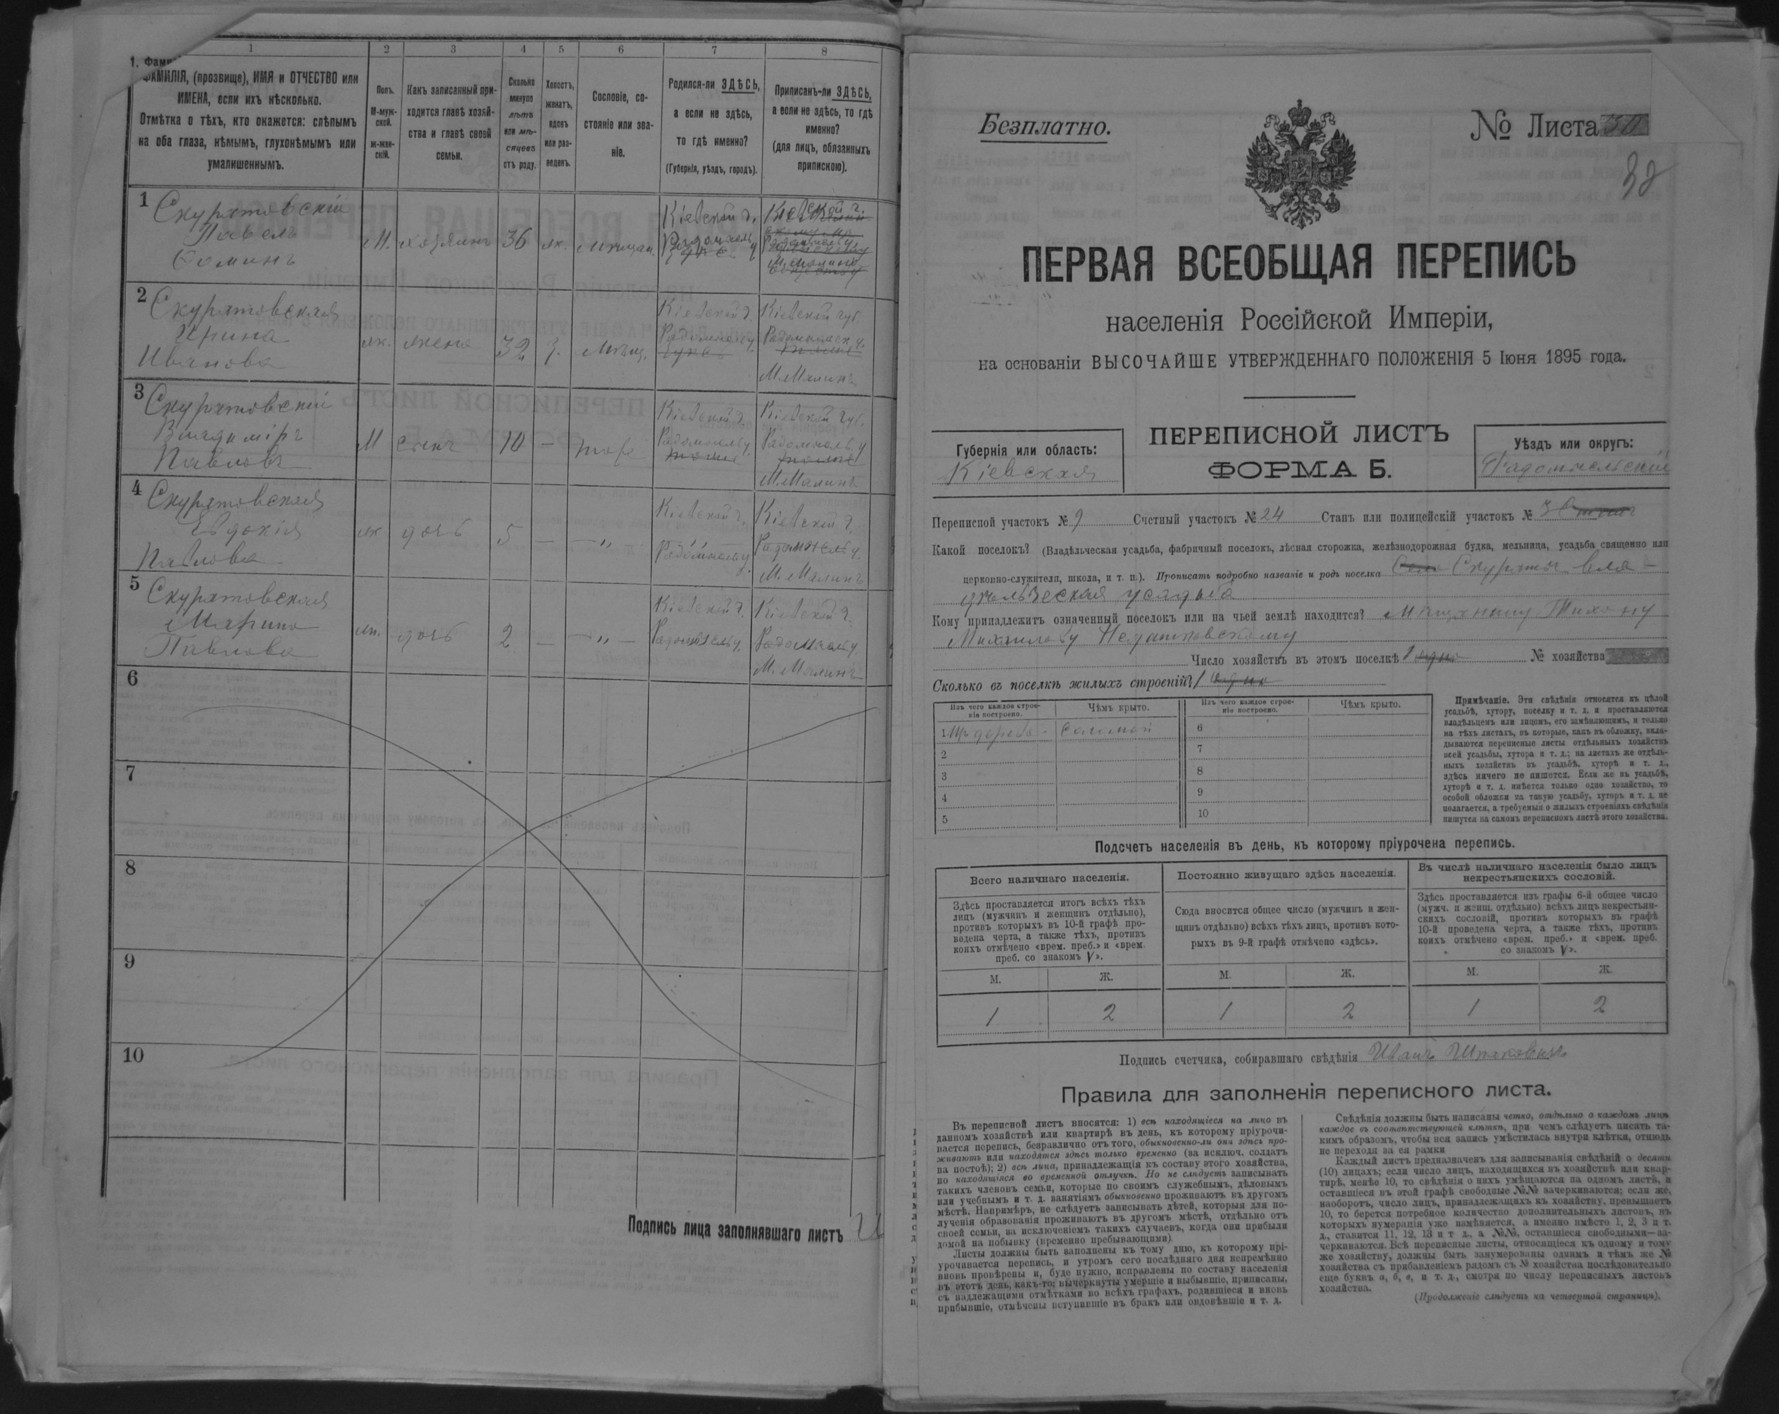 1 2 3 4 5 6 7 8
ФАМИЛІЯ, (прозвище), ИМЯ и ОТЧЕСТВО или
ИМЕНА, если ихъ нѣсколько.
Отмѣтка о тѣхъ, кто окажется: слѣпымъ
на оба глаза, нѣмымъ, глухонѣмымъ или
умалишеннымъ.
Полъ.
М-муж-
ской.
ж-жен-
скій.
Какъ записанный при-
ходится главѣ хозяй-
ства и главѣ своей
семьи.
Сколько
минуло
лѣтъ
или мѣ-
сяцевъ
отъ роду.
Холостъ,
женатъ,
вдовъ
или раз-
веденъ.
Сословіе, со-
стояніе или зва-
ніе.
Родился-ли ЗДѢСЬ,
а если не здѣсь,
то гдѣ именно?
(Губернія, уѣздъ, городъ).
Приписанъ-ли ЗДѢСЬ,
а если не здѣсь, то гдѣ
именно?
(для лицъ, обязанныхъ
припискою).
1 Скуратовскій
Павелъ
Фоминъ
М. хозяинъ 36 ж. мѣщан.
Кіевской г.
2 Скуратовская
Ирина
Иванова
ж. жена 32 з. мѣщ.
Кіевской г.
Радомысл у.
Кіевской губ.
Радомысл у.
М. Малинъ
3 Скуратовскій
Владиміръ
Павловъ
М сынъ 10 — тоже
Кіевской г.
Радомысл у.
Кіевской губ.
Радомысл у
М. Малинъ
4 Скуратовская
Евдокія
Павлова
ж дочь 5 — — „
Кіевской г.
Радомысл у.
Кіевской г.
Радомысл у.
М. Малинъ
5 Скуратовская
Марина
Павлова
ж. дочь 2 — — „ —
Кіевской г
Радомысл у.
Кіевской г.
Радомысл у.
М. Малинъ
6
7
8
9
10
Подпись лица заполнявшаго листъ
Безплатно.
№ Листа
38
ПЕРВАЯ ВСЕОБЩАЯ ПЕРЕПИСЬ
населенія Россійской Имперіи,
на основаніи ВЫСОЧАЙШЕ УТВЕРЖДЕННАГО ПОЛОЖЕНІЯ 5 Іюня 1895 года.
Губернія или область:
Кіевская
ПЕРЕПИСНОЙ ЛИСТЪ
ФОРМА Б.
Уѣздъ или округъ:
Радомысльскій
Переписной участокъ № 9 Счетный участокъ № 24 Станъ или полицейскій участокъ № 3
Какой поселокъ? (Владѣльческая усадьба, фабричный поселокъ, лѣсная сторожка, желѣзнодорожная будка, мельница, усадьба священно или
церковно-служителя, школа, и т. п.). Прописать подробно названіе и родъ поселка
дѣльческая усадьба
Кому принадлежитъ означенный поселокъ или на чьей землѣ находится? Мѣщанину Тихону
Михайлову
Число хозяйствъ въ этомъ поселкѣ 1 № хозяйства
Сколько въ поселкѣ жилыхъ строеній? 1
Изъ чего каждое строе-
ніе построено. Чѣмъ крыто. Изъ чего каждое строе-
ніе построено. Чѣмъ крыто.
1 Изъ дерева - соломой 6
2 7
3 8
4 9
5 10
Примѣчаніе. Эти свѣдѣнія относятся къ цѣлой
усадьбѣ, хутору, поселку и т. д. и проставляются
владѣльцемъ или лицомъ, его замѣняющимъ, и только
на тѣхъ листахъ, въ которые, какъ въ обложку, вкла-
дываются переписные листы отдѣльныхъ хозяйствъ
всей усадьбы, хутора и т. д.; на листахъ же отдѣль-
ныхъ хозяйствъ въ усадьбѣ, хуторѣ и т. д.,
здѣсь ничего не пишется. Если же въ усадьбѣ,
хуторѣ и т. д. имѣется только одно хозяйство, то
особой обложки на такую усадьбу, хуторъ и т. д. не
полагается, а требуемыя о жилыхъ строеніяхъ свѣдѣнія
пишутся на самомъ переписномъ листѣ этого хозяйства.
Подсчетъ населенія въ день, къ которому пріурочена перепись.
Всего наличнаго населенія.
Здѣсь проставляется итогъ всѣхъ тѣхъ
лицъ (мужчинъ и женщинъ отдѣльно),
противъ которыхъ въ 10-й графѣ про-
ведена черта, а также тѣхъ, противъ
коихъ отмѣчено «врем. преб.» и «врем.
преб. со знакомъ V».
Постоянно живущаго здѣсь населенія.
Сюда вносится общее число (мужчинъ и жен-
щинъ отдѣльно) всѣхъ тѣхъ лицъ, противъ кото-
рыхъ въ 9-й графѣ отмѣчено «здѣсь».
Въ числѣ наличнаго населенія было лицъ
некрестьянскихъ сословій.
Здѣсь проставляется изъ графы 6-й общее число
(мужч. и женщ. отдѣльно) всѣхъ лицъ некрестьян-
скихъ сословій, противъ которыхъ въ графѣ
10-й проведена черта, а также тѣхъ, противъ
коихъ отмѣчено «врем. преб.» и «врем. преб.
со знакомъ V».
М. Ж. М. Ж. М. Ж.
1 2 1 2 1 2
Подпись счетчика, собиравшаго свѣдѣнія Иванъ
Правила для заполненія переписного листа.
Въ переписной листъ вносятся: 1) всѣ находящіеся на лицо въ
данномъ хозяйствѣ или квартирѣ въ день, къ которому пріурочи-
вается перепись, безразлично отъ того, обыкновенно-ли они здѣсь про-
живаютъ или находятся здѣсь только временно (за исключ. солдатъ
на постоѣ); 2) всѣ лица, принадлежащія къ составу этого хозяйства,
но находящіяся во временной отлучкѣ. Но не слѣдуетъ записывать
такихъ членовъ семьи, которые по своимъ служебнымъ, дѣловымъ
или учебнымъ и т. д. занятіямъ обыкновенно проживаютъ въ другомъ
мѣстѣ. Напримѣръ, не слѣдуетъ записывать дѣтей, которыя для по-
лученія образованія проживаютъ въ другомъ мѣстѣ, отдѣльно отъ
своей семьи, за исключеніемъ такихъ случаевъ, когда они прибыли
домой на побывку (временно пребывающими).
Листы должны быть заполнены къ тому дню, къ которому прі-
урочивается перепись, и утромъ сего послѣдняго дня непремѣнно
вновь провѣрены и, буде нужно, исправлены по составу населенія
въ этотъ день, какъ-то: вычеркнуты умершіе и выбывшіе, приписаны,
съ надлежащими отмѣтками во всѣхъ графахъ, родившіеся и вновь
прибывшіе, отмѣчены вступившіе въ бракъ или овдовѣвшіе и т. д.
Свѣдѣнія должны быть написаны четко, отдѣльно о каждомъ лицѣ
каждое въ соотвѣтствующей клѣткѣ, при чемъ слѣдуетъ писать та-
кимъ образомъ, чтобы вся запись умѣстилась внутри клѣтки, отнюдь
не переходя за ея рамки
Каждый листъ предназначенъ для записыванія свѣдѣній о десяти
(10) лицахъ; если число лицъ, находящихся въ хозяйствѣ или квар-
тирѣ, менѣе 10, то свѣдѣнія о нихъ умѣщаются на одномъ листѣ, и
оставшіеся въ этой графѣ свободные №№ зачеркиваются; если же,
наоборотъ, число лицъ, принадлежащихъ къ хозяйству, превышаетъ
10, то берется потребное количество дополнительныхъ листовъ, въ
которыхъ нумерація уже измѣняется, а именно вмѣсто 1, 2, 3 и т.
д., ставится 11, 12, 13 и т д., а №№, оставшіеся свободными—за-
черкиваются. Всѣ переписные листы, относящіеся къ одному и тому
же хозяйству, должны быть занумерованы однимъ и тѣмъ же №
хозяйства съ прибавленіемъ рядомъ съ № хозяйства послѣдовательно
еще буквъ а, б, в, и т. д., смотря по числу переписныхъ листовъ
хозяйства.
(Продолженіе слѣдуетъ на четвертой страницѣ).